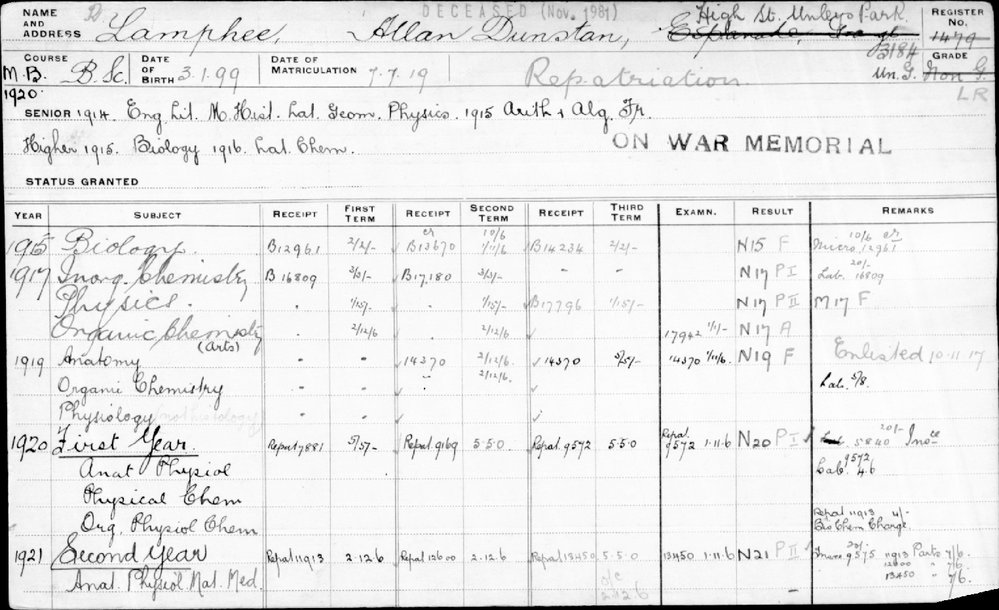 DECEASED (Nov. 1981)
NAME AND ADDRESS Lamphee, Allan Dunstan, High St. Unley Park. Esplanade,
REGISTER No. 1479 3184
COURSE M.B. B.Sc. DATE OF BIRTH 3.1.99 DATE OF MATRICULATION 7.7.19 Repatriation GRADE Un. G. Non G. LR
1920
SENIOR 1914. Eng. Lit. M. Hist. Lat. Geom. Physics. 1915 Arith & Alg. Fr.
Higher 1915. Biology 1916. Lat. Chem. ON WAR MEMORIAL
STATUS GRANTED
YEAR SUBJECT RECEIPT FIRST TERM RECEIPT SECOND TERM RECEIPT THIRD TERM EXAMN. RESULT REMARKS
1915 Biology. B12961 2/2/- er B13670 10/6 1/11/6 B14234 2/2/- N15 F Micro. 10/6 er 12961
1917 Inorg. Chemistry B16809 3/3/- B17180 3/3/- " - N17 PI Lab. 20/- 16809
Physics. " 1/15/- 1/15/- B17796 1/15/- N17 PII M17 F
Organic Chemistry " 2/12/6 2/12/6 17942 1/1/- N17 A
(Arts)
1919 Anatomy " " 14370 2/12/6. 14370 5/5/- 14370 1/11/6 N19 F Enlisted 10.11.17
Organic Chemistry " " " 2/12/6. Lab. 5/8.
Physiology (not histology) " "
1920 First Year Repat 7881 5/5/- Repat. 9169 5.5.0 Repat 9572 5.5.0 Repat. 9572 1.11.6 N20 PI 20/- 5840 Ince
Anat Physiol Lab. 9572 4.6
Physical Chem
Org. Physiol Chem Repat 11913 4/- Bio Chem Charge.
1921 Second Year Repat 11913 2.12.6 Repat 12600 2.12.6 Repat 13450 5.5.0 13450 1.11.6 N21 PII 20/- 9575 11913 Parts 7/6.
12600 " 7/6.
Anat. Physiol Mat. Med. o/c 2.12.6 13450 " 7/6